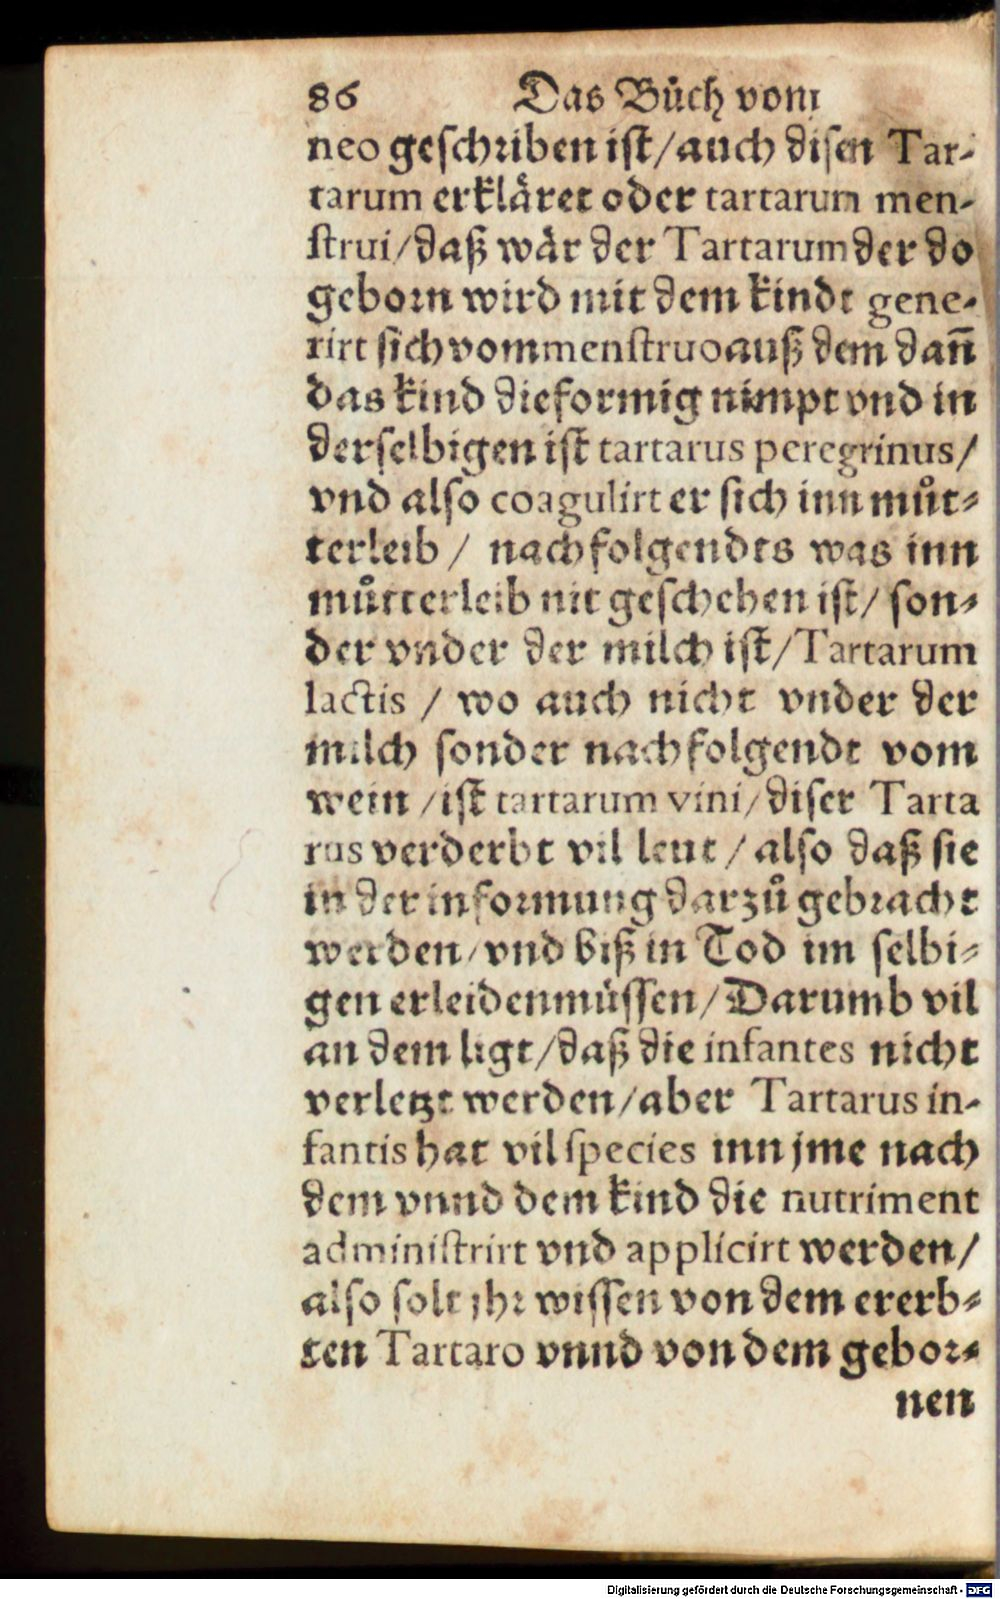 86 Das Bůch vom
neo geſchriben iſt/auch diſen Tar-
tarum erkläret oder tartarum men-
ſtrui/daß wår der Tartarum der do
geborn wird mit dem kindt gene-
rirt ſich vom menſtruo auß dem dañ
das kind die formig nimpt vnd in
derſelbigen iſt tartarus peregrinus/
vnd alſo coagulirt er ſich inn můt-
terleib / nachfolgendts was inn
můtterleib nit geſchehen iſt/ ſon-
der vnder der milch iſt/Tartarum
lactis / wo auch nicht vnder der
milch ſonder nachfolgendt vom
wein /iſt tartarum vini/diſer Tarta
rus verderbt vil leut / alſo daß ſie
in der informung darzů gebracht
werden/vnd biß in Tod im ſelbi-
gen erleiden müſſen/Darumb vil
an dem ligt/daß die infantes nicht
verletzt werden/aber Tartarus in-
fantis hat vil ſpecies inn jme nach
dem vnnd dem kind die nutriment
adminiſtrirt vnd applicirt werden/
alſo ſolt jhr wiſſen von dem ererb-
ten Tartaro vnnd von dem gebor-
nen
Digitalisierung gefördert durch die Deutsche Forschungsgemeinschaft - DFG